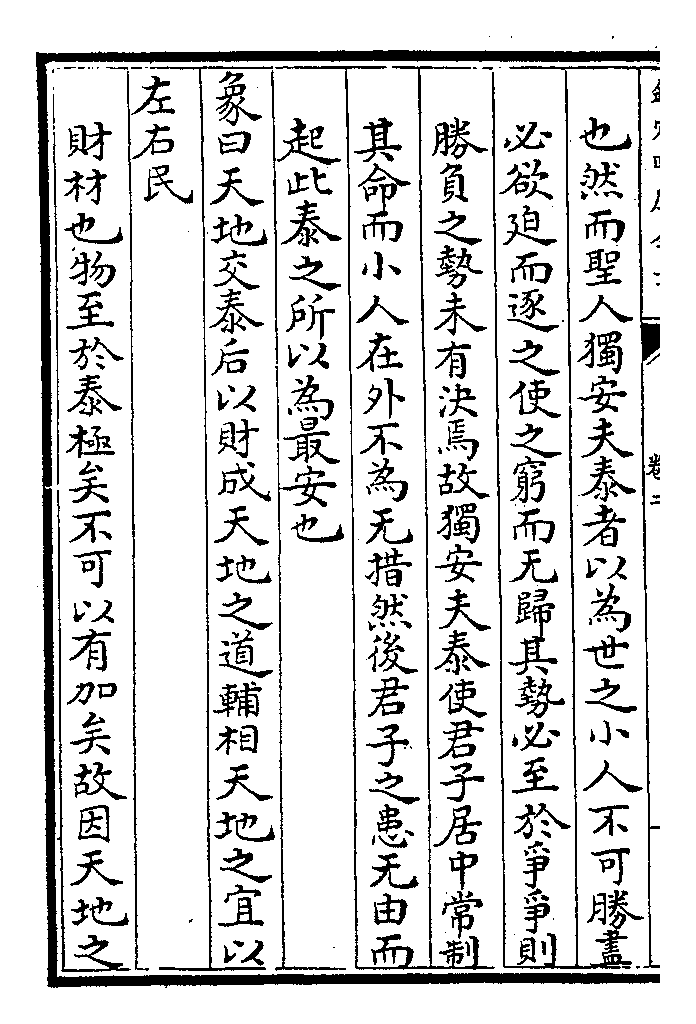 欽定四庫全書
卷二
也然而聖人獨安夫泰者以為世之小人不可勝盡
必欲迫而逐之使之窮而无歸其勢必至於爭爭則
勝負之勢未有決焉故獨安夫泰使君子居中常制
其命而小人在外不為无措然後君子之患无由而
起此泰之所以為最安也
象曰天地交泰后以財成天地之道輔相天地之宜以
左右民
財材也物至於泰極矣不可以有加矣故因天地之